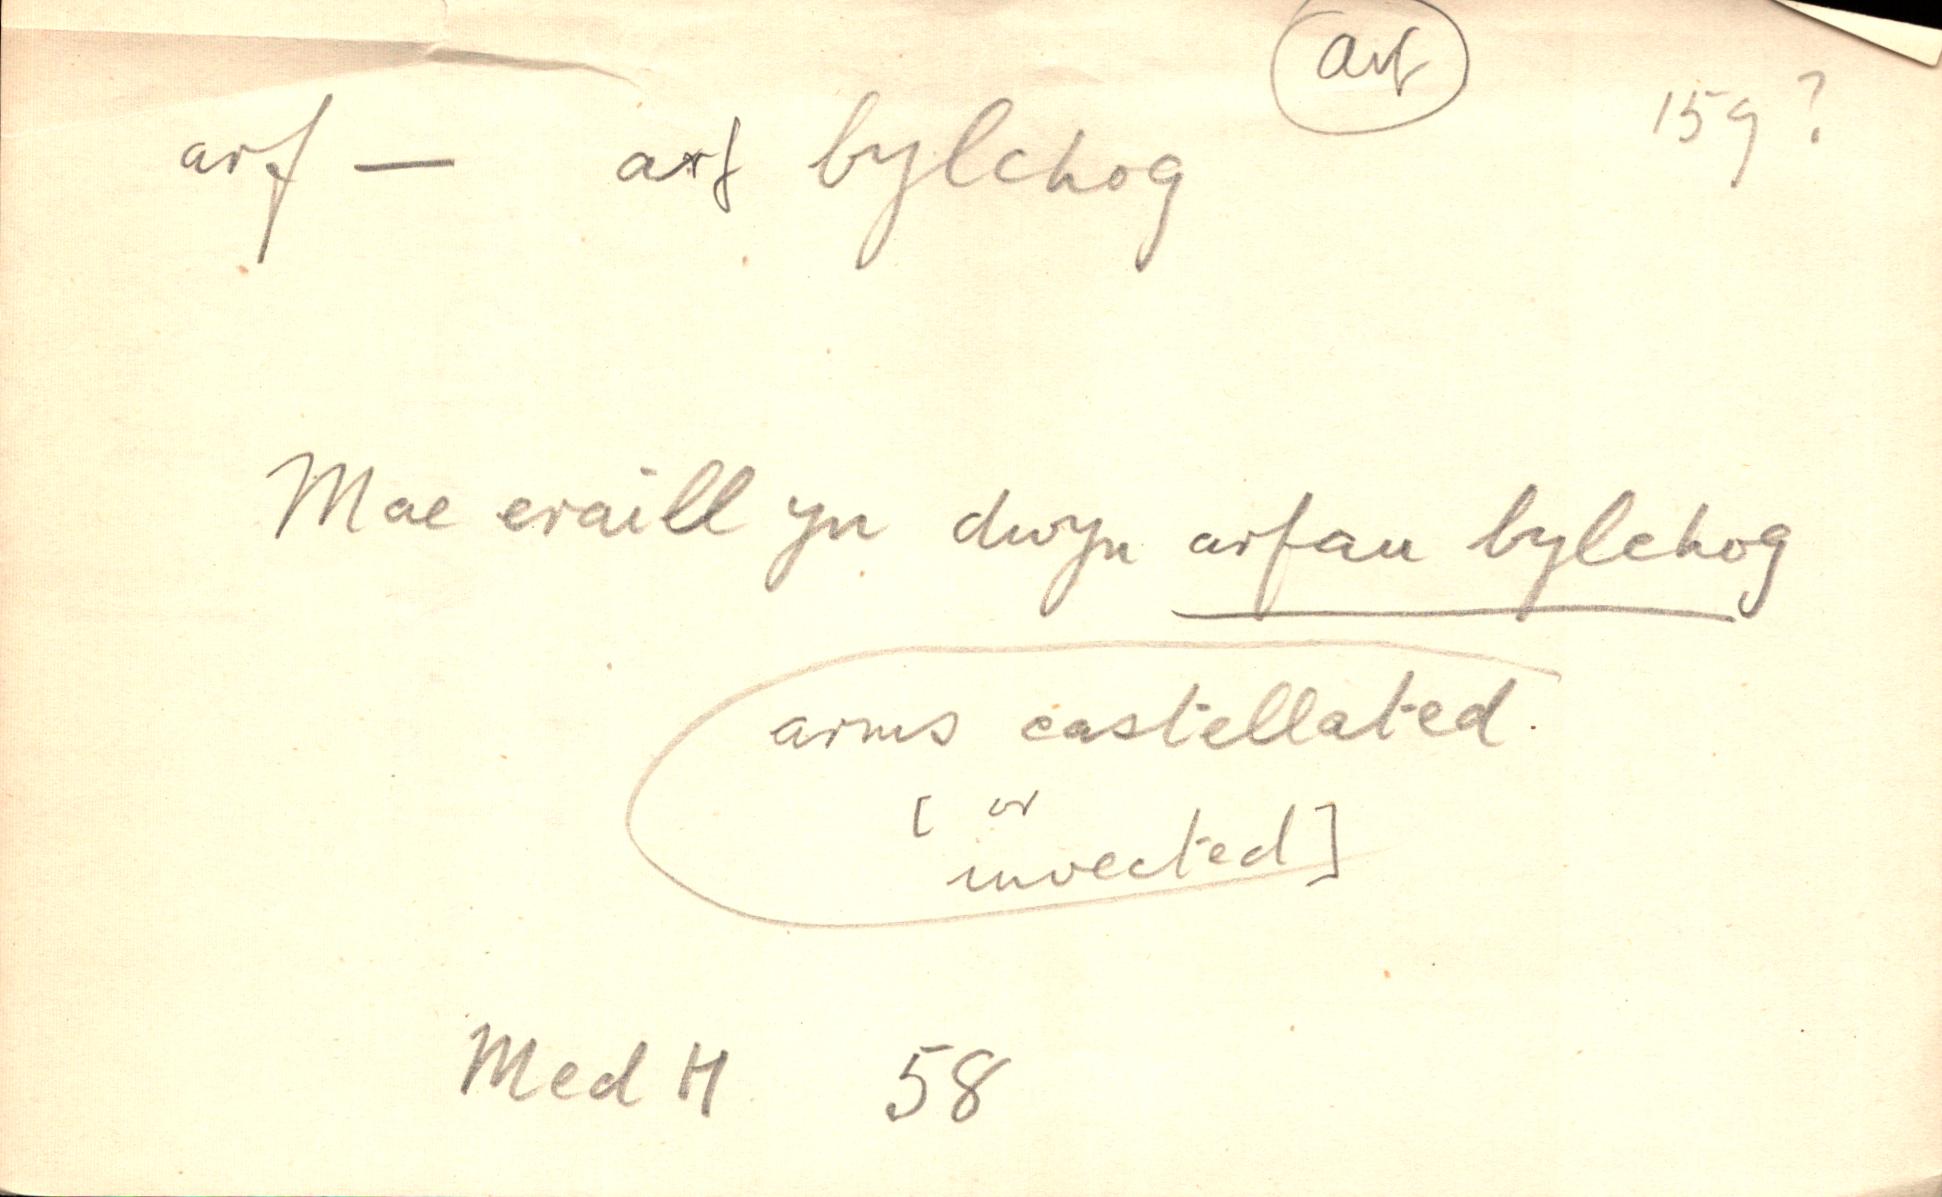 arf
159?
arf — arf bylchog
Mae eraill yn dwyn arfau bylchog
arms castellated.
[ or
invected]
Med H 58